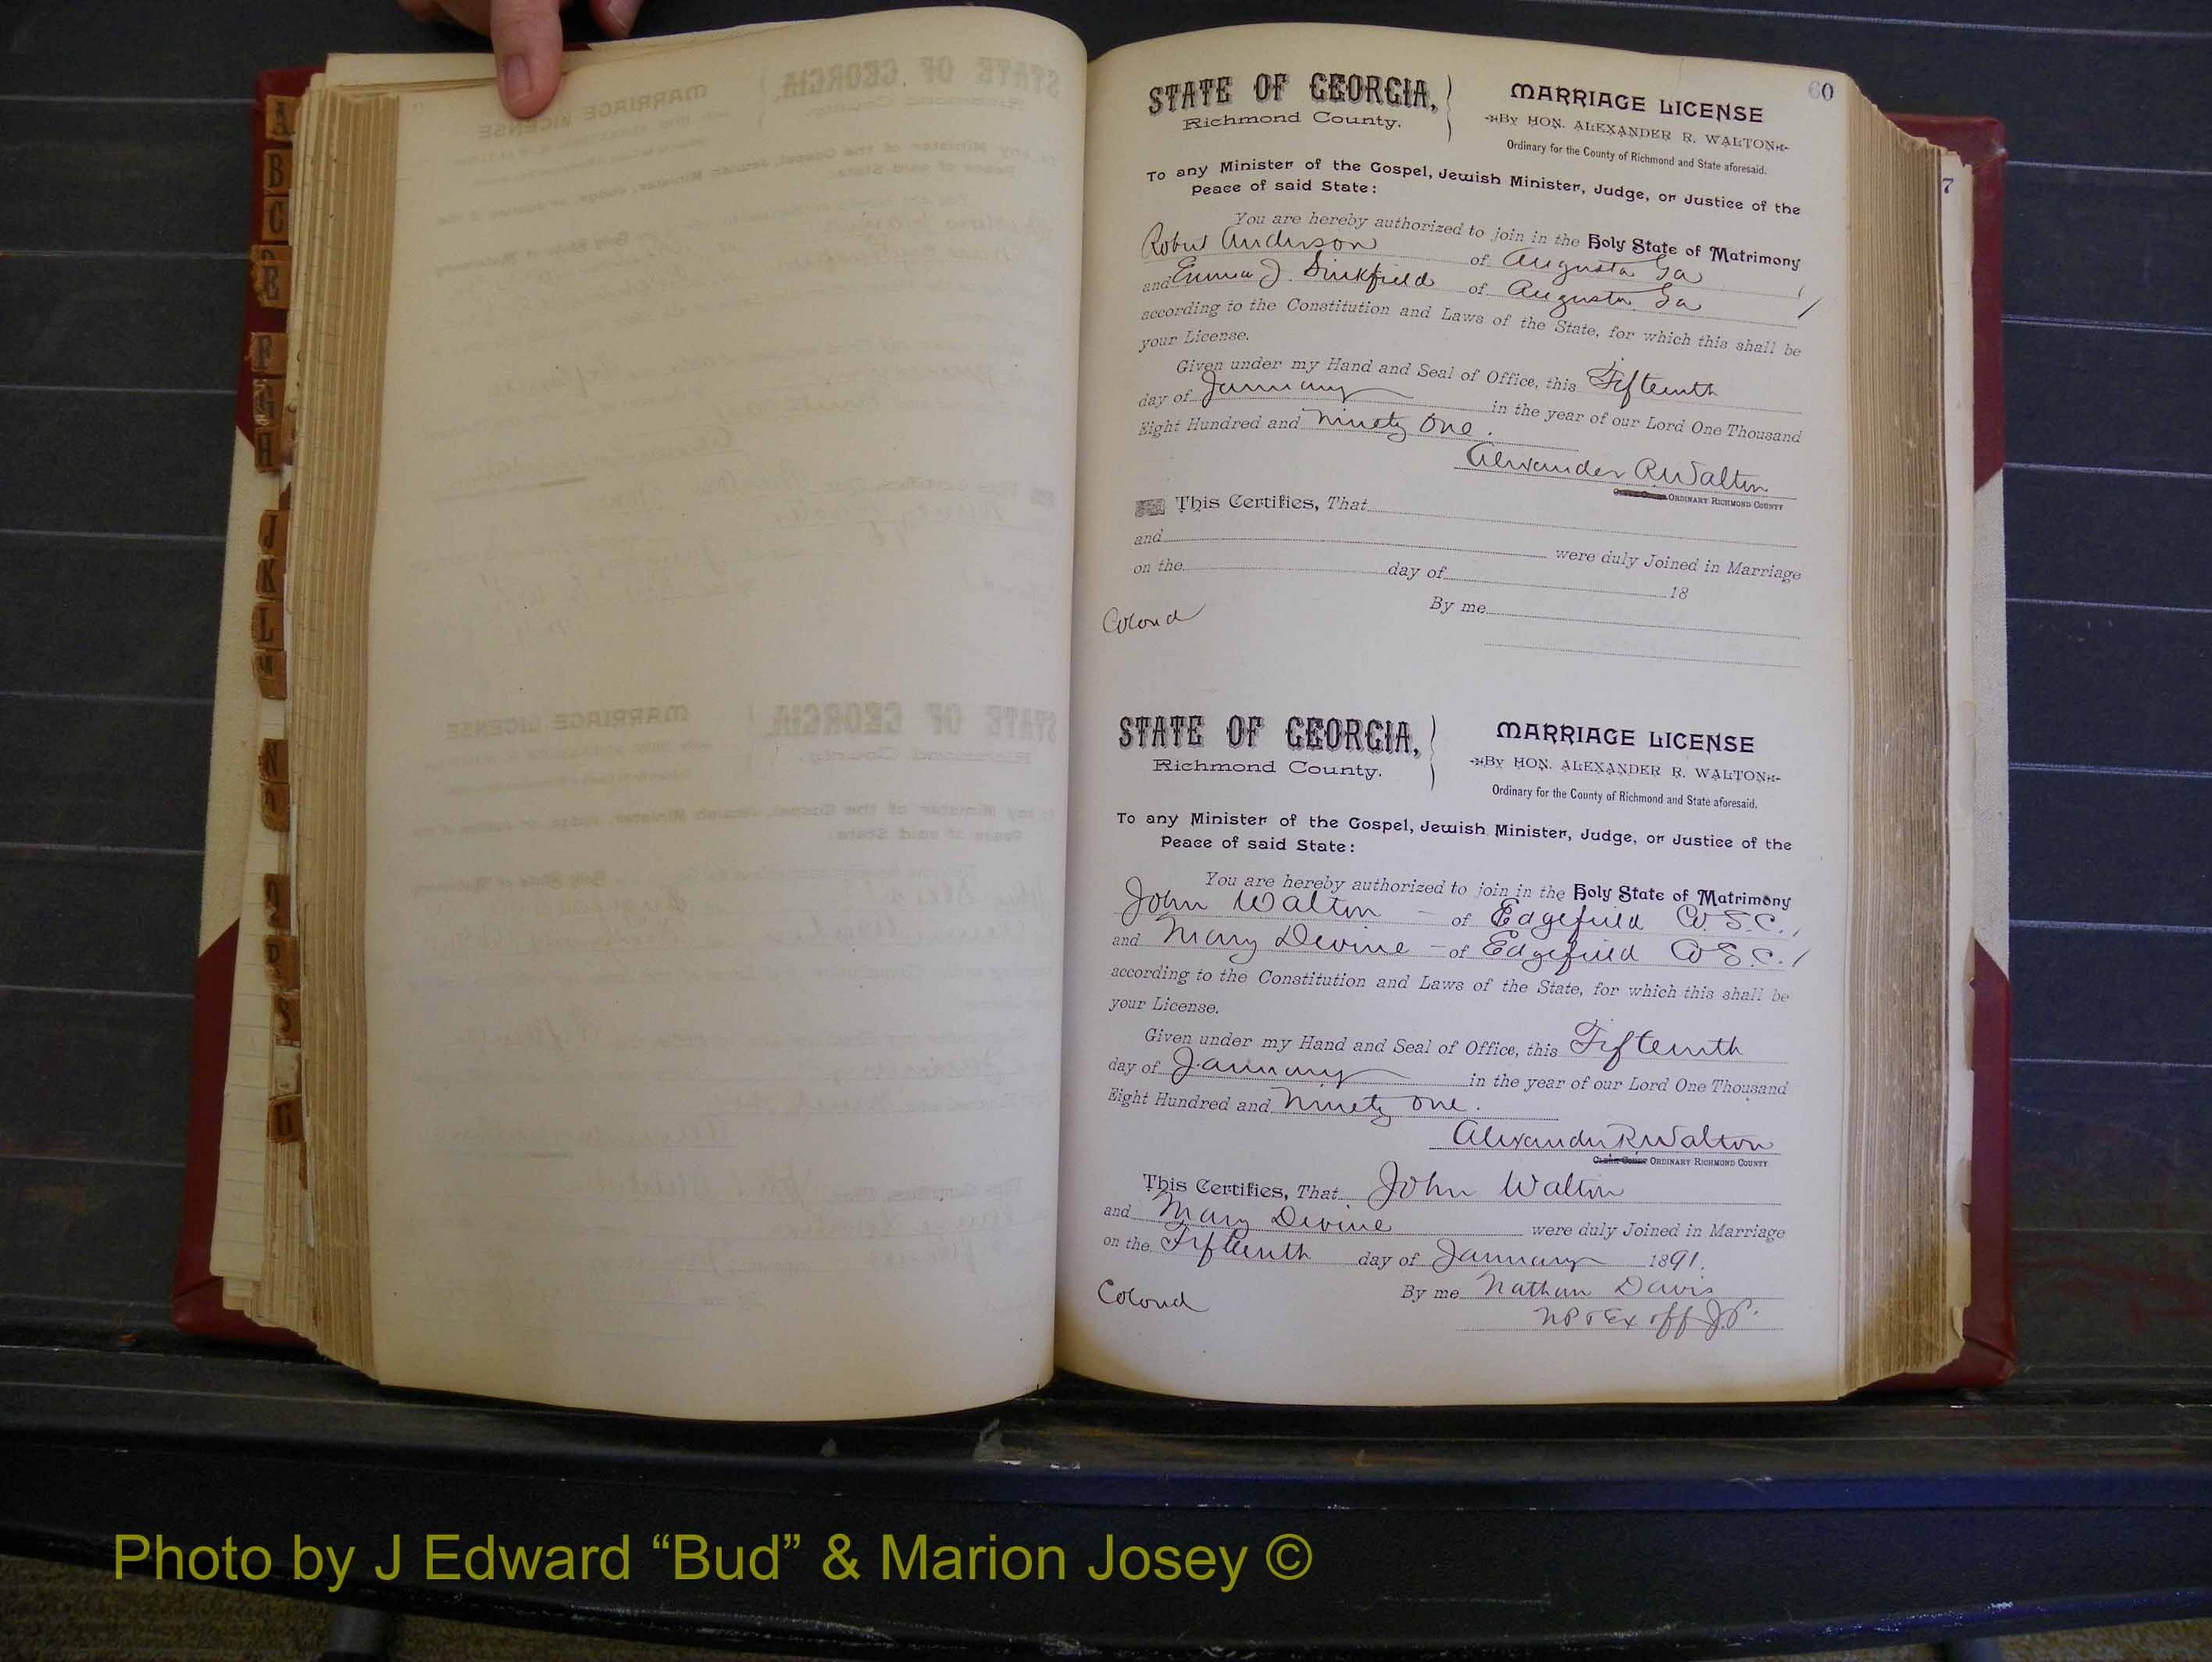 A
B
C
E
F
G
H
J
K
L
M
N
O
P
S
G
60
7
STATE OF GEORGIA,
Richmond County.
MARRIAGE LICENSE
By HON. ALEXANDER R. WALTON
Ordinary for the County of Richmond and State aforesaid.
To any Minister of the Gospel, Jewish Minister, Judge, or Justice of the
Peace of said State:
You are hereby authorized to join in the Holy State of Matrimony
Robert Anderson of Augusta Ga
and Emma J. of Augusta Ga
according to the Constitution and Laws of the State, for which this shall be
your License.
Given under my Hand and Seal of Office, this Fifteenth
day of January in the year of our Lord One Thousand
Eight Hundred and Ninety One.
Alexander R Walton
ORDINARY RICHMOND COUNTY
This Certifies, That
and were duly Joined in Marriage
on the day of 18
By me
Colord
STATE OF GEORGIA,
Richmond County.
MARRIAGE LICENSE
By HON. ALEXANDER R. WALTON
Ordinary for the County of Richmond and State aforesaid.
To any Minister of the Gospel, Jewish Minister, Judge, or Justice of the
Peace of said State:
You are hereby authorized to join in the Holy State of Matrimony
John Walton of Edgefield Co S.C.
and Mary Devine of Edgefield Co S.C.
according to the Constitution and Laws of the State, for which this shall be
your License.
Given under my Hand and Seal of Office, this Fifteenth
day of January in the year of our Lord One Thousand
Eight Hundred and Ninety One.
Alexander R Walton
ORDINARY RICHMOND COUNTY
This Certifies, That John Walton
and Mary Devine were duly Joined in Marriage
on the Fifteenth day of January 1891.
By me Nathan Davis
NP & Ex off J.P.
Colord
Photo by J Edward “Bud” & Marion Josey ©